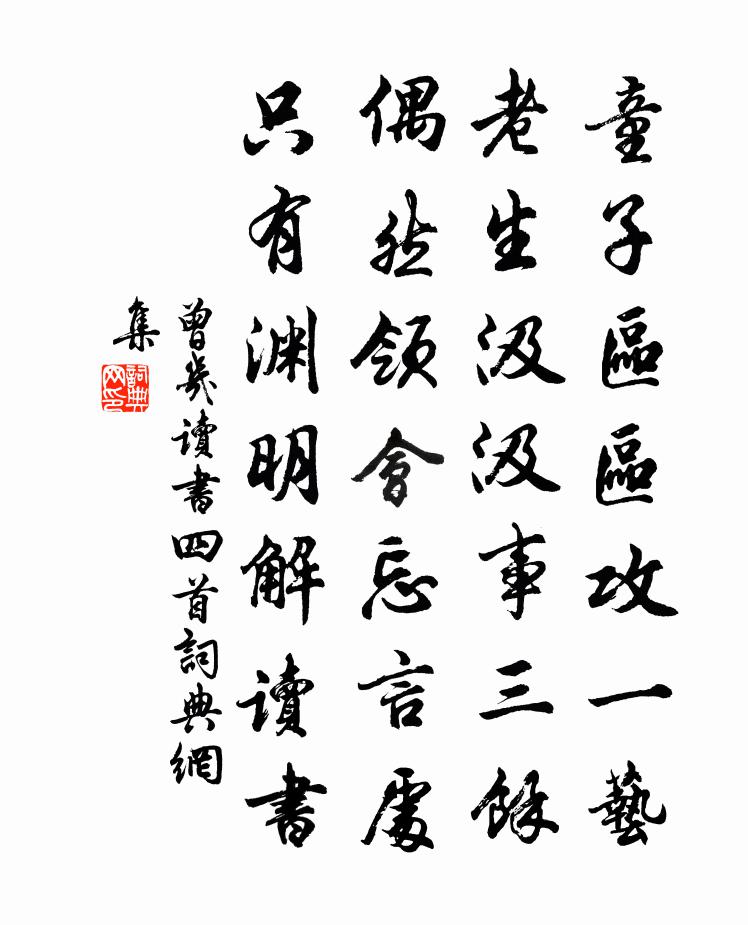 童子區區攻一藝
老生汲汲事三餘
偶然領會忘言處
只有渊明解读書
曾幾讀書四首詞典網
集
詞典
网印